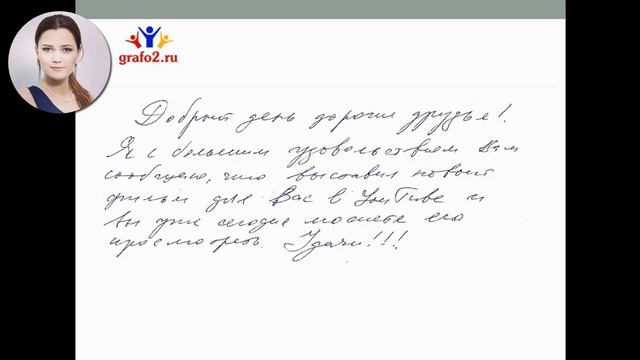 grafo2.ru
Добрый день дорогие друзья!
Я с большим удовольствием Вам
сообщаю, что выставил новый
фильм для Вас в YouTube и
Вы уже сегодня можете его
просмотреть. Удачи!!!